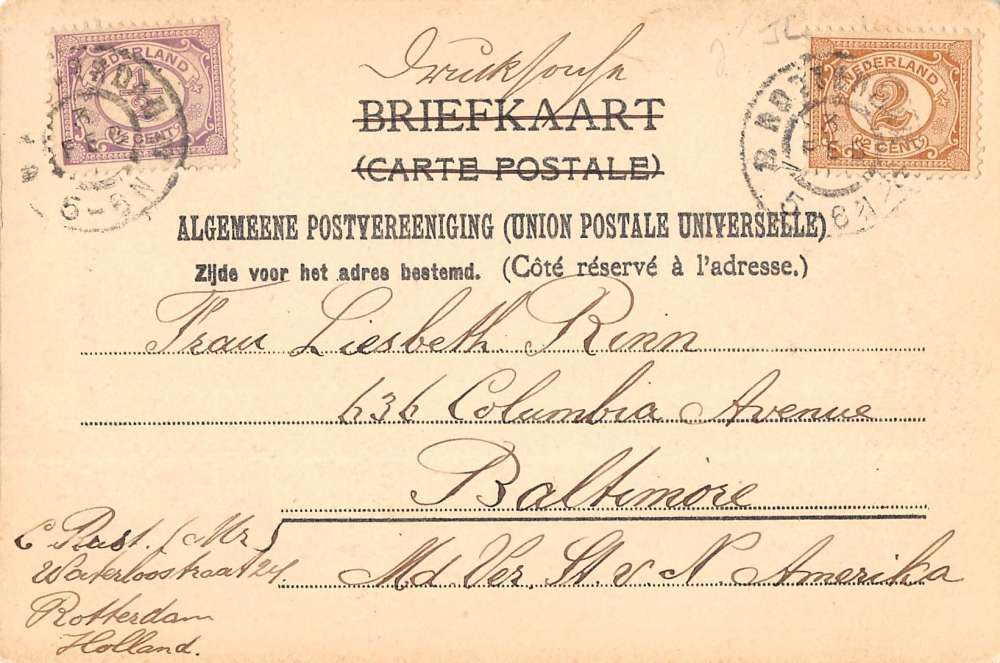 NEDERLAND
½
(½ CENT)
NEDERLAND
2
(2 CENT)
5-6N
Drucksache
BRIEFKAART
(CARTE POSTALE)
ALGEMEENE POSTVEREENIGING (UNION POSTALE UNIVERSELLE)
Zijde voor het adres bestemd. (Côté réservé à l'adresse.)
Frau Liesbeth Rinn
636 Columbia Avenue
Baltimore
Md Ver. St. v. N. Amerika
C Rast. (Mr)
Waterloostraat 24
Rotterdam
Holland.